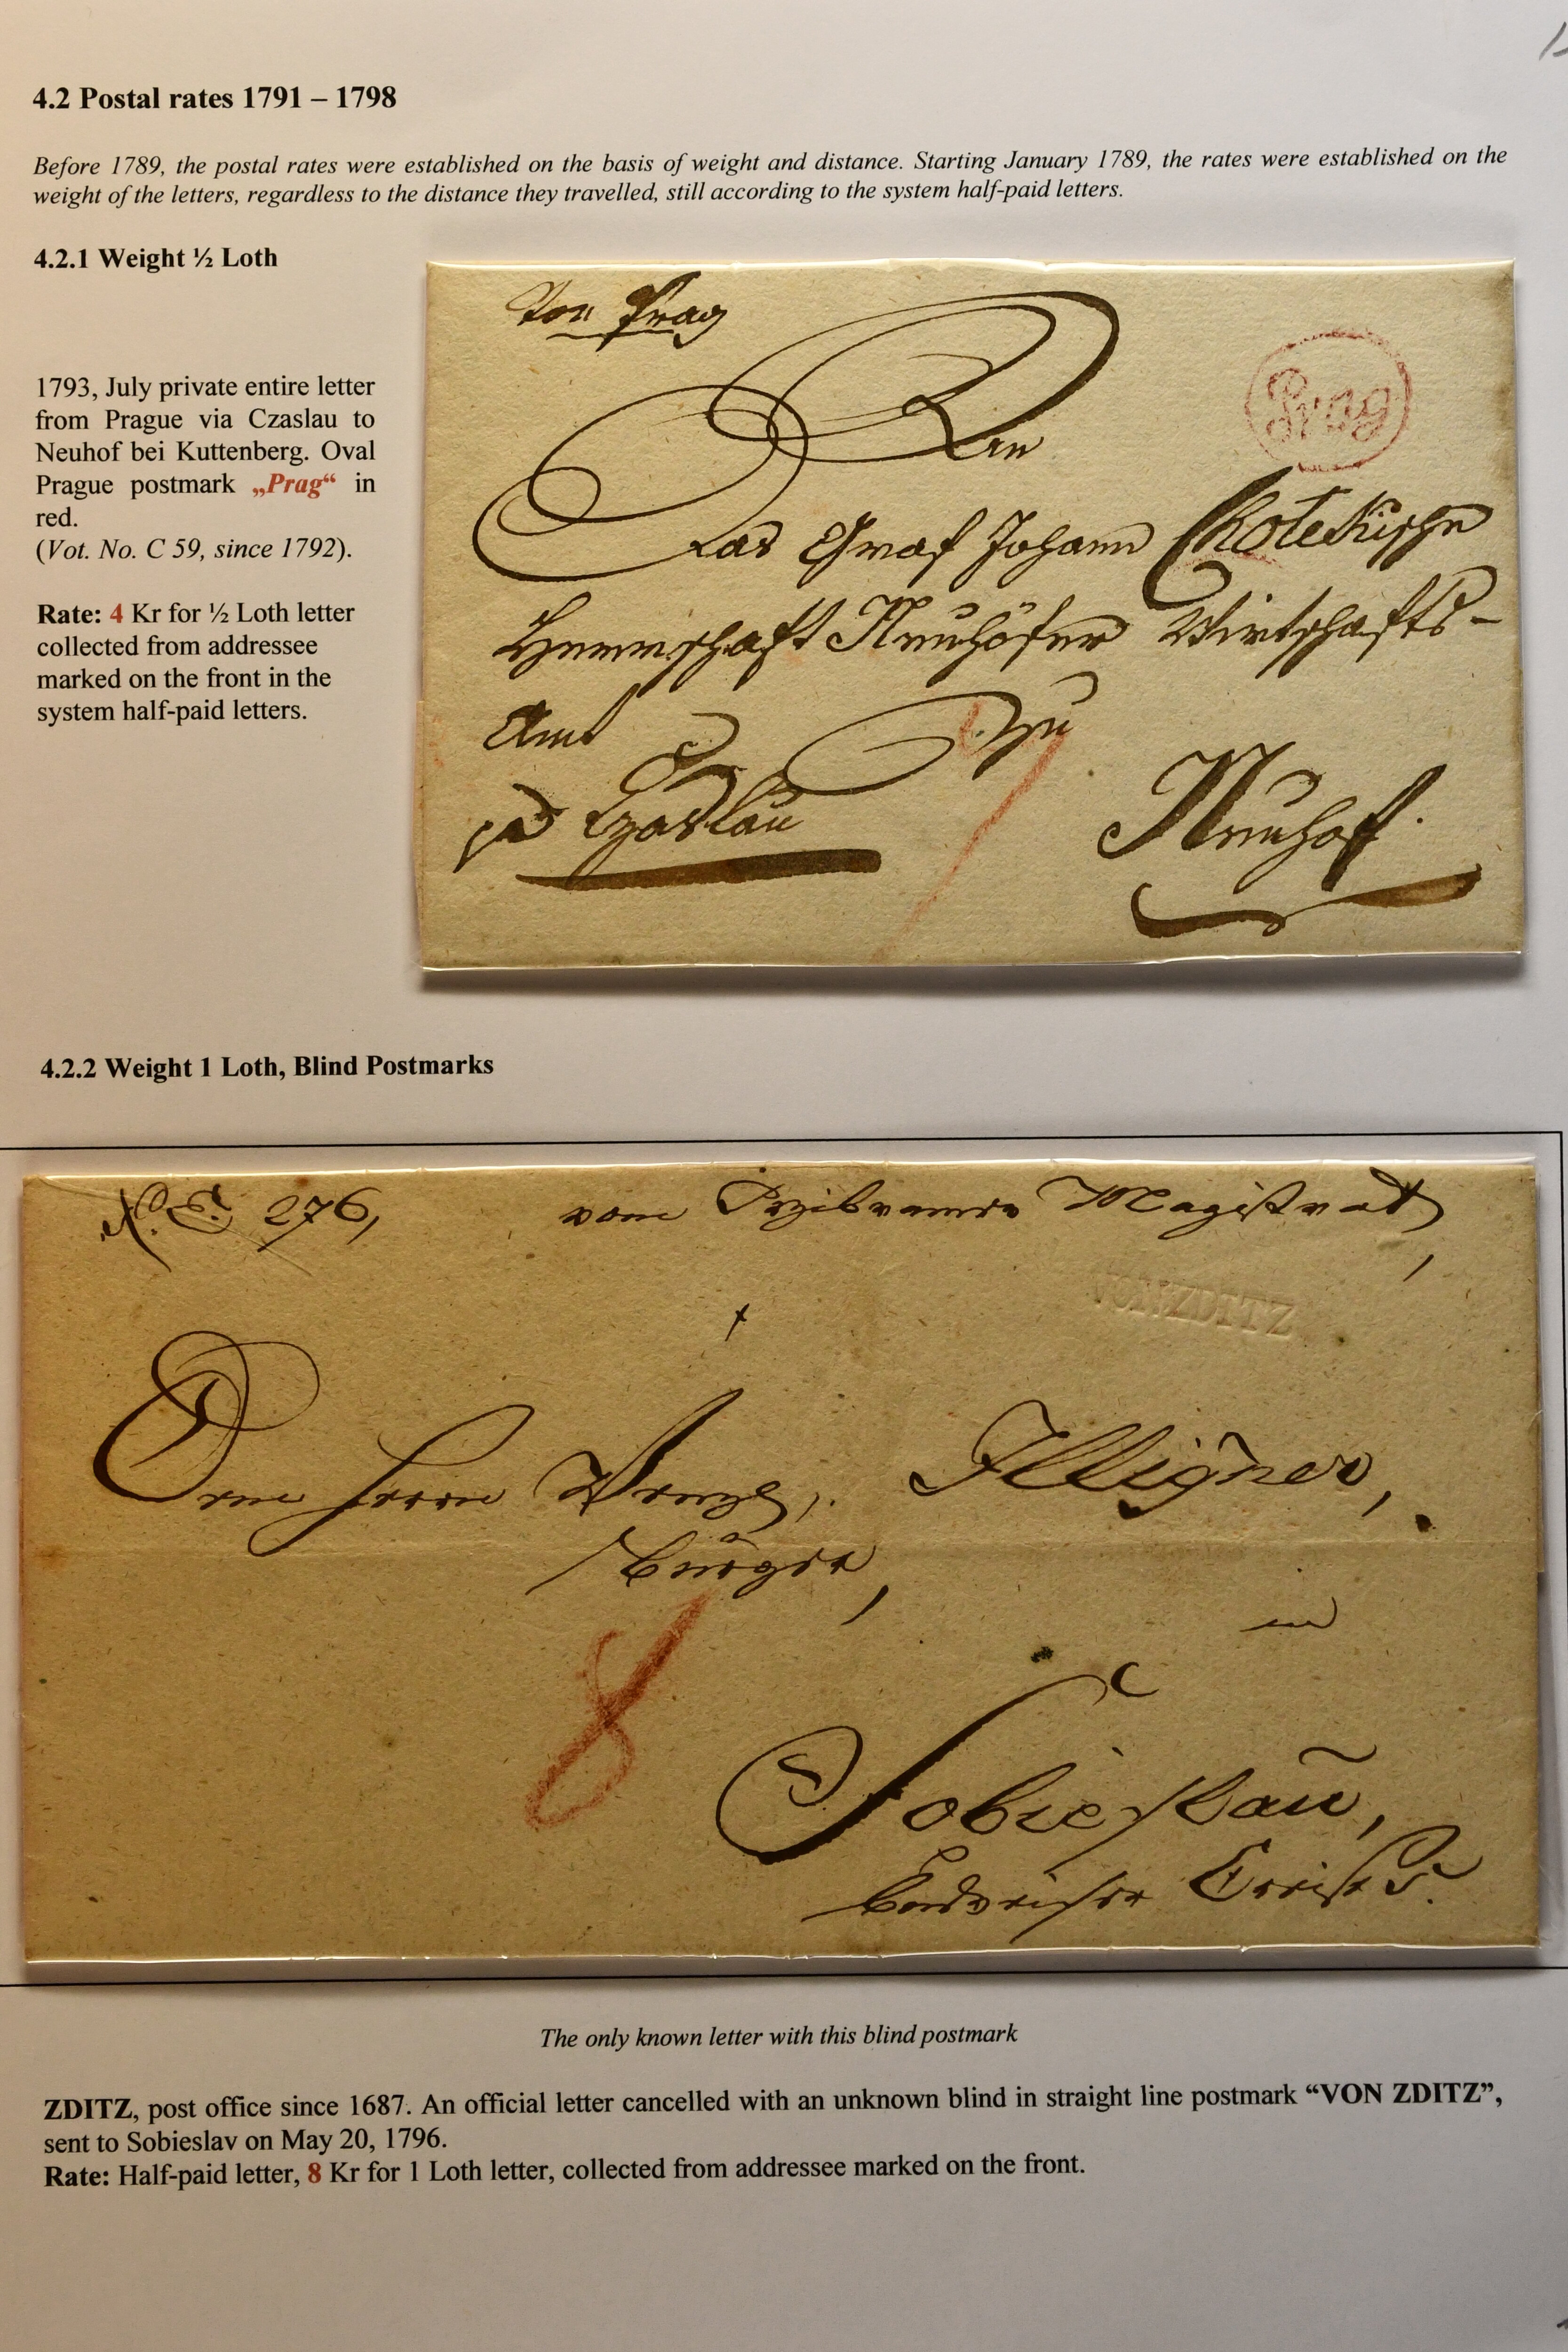 4.2 Postal rates 1791 – 1798
Before 1789, the postal rates were established on the basis of weight and distance. Starting January 1789, the rates were established on the
weight of the letters, regardless to the distance they travelled, still according to the system half-paid letters.
4.2.1 Weight ½ Loth
1793, July private entire letter
from Prague via Czaslau to
Neuhof bei Kuttenberg. Oval
Prague postmark „Prag“ in
red.
(Vot. No. C 59, since 1792).
Rate: 4 Kr for ½ Loth letter
collected from addressee
marked on the front in the
system half-paid letters.
Von Prag
Prag
An
Das Graf Johann Chotekische
Herrschaft Neuhöfer Wirtschafts-
Amt zu
Czaslau
Neuhof.
4.2.2 Weight 1 Loth, Blind Postmarks
276,
vom Przibramer Magistrat,
VON ZDITZ
Dem Herrn Wenzl, Illigner,
Bürger,
in
8
Sobieslau,
Budweiser Kreises.
The only known letter with this blind postmark
ZDITZ, post office since 1687. An official letter cancelled with an unknown blind in straight line postmark “VON ZDITZ”,
sent to Sobieslav on May 20, 1796.
Rate: Half-paid letter, 8 Kr for 1 Loth letter, collected from addressee marked on the front.